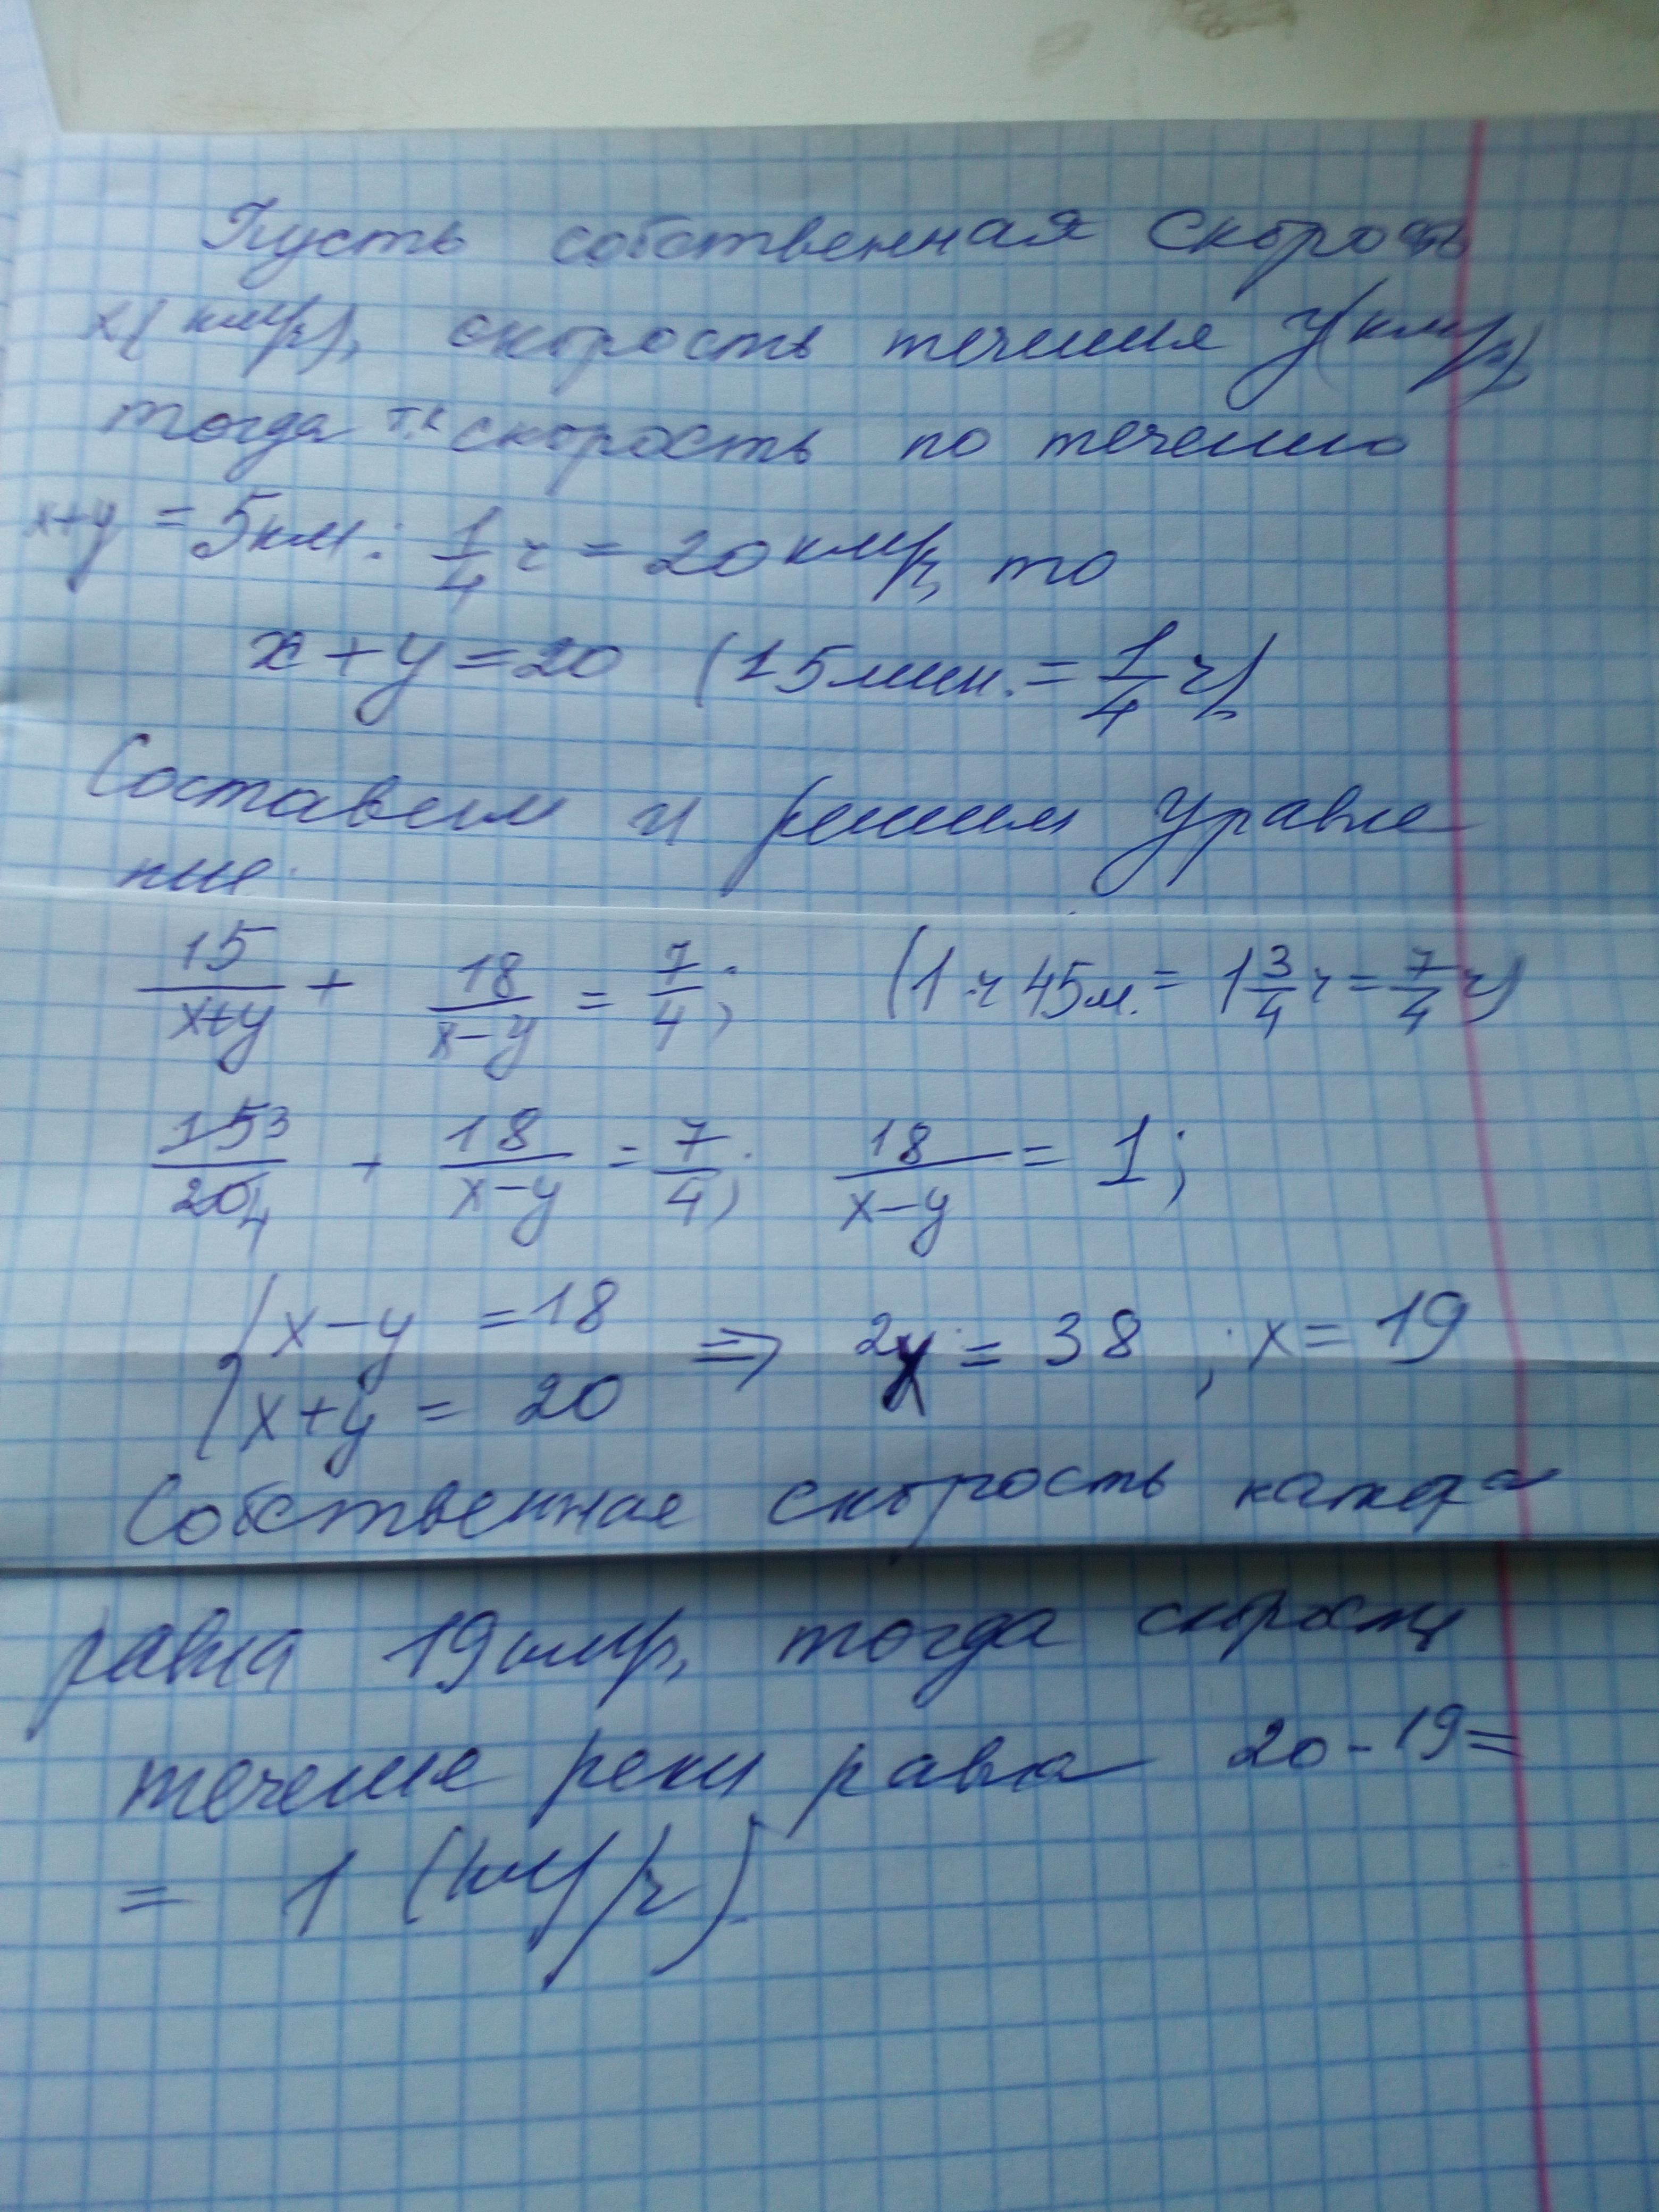 Пусть собственная скорость
x(км/ч), скорость течения y(км/ч)
тогда т.к скорость по течению
x+y = 5км : 1/4 ч = 20 км/ч, то
x + y = 20 (15мин. = 1/4 ч)
Составим и решим уравне
ние:
15/(x+y) + 18/(x-y) = 7/4; (1 ч 45м. = 1 3/4 ч = 7/4 ч)
15 3/20 4 + 18/(x-y) = 7/4; 18/(x-y) = 1;
{ x-y = 18
x+y = 20 => 2x = 38 ; x = 19
Собственная скорость катера
равна 19км/ч, тогда скорость
течение реки равна 20-19=
= 1 (км/ч)